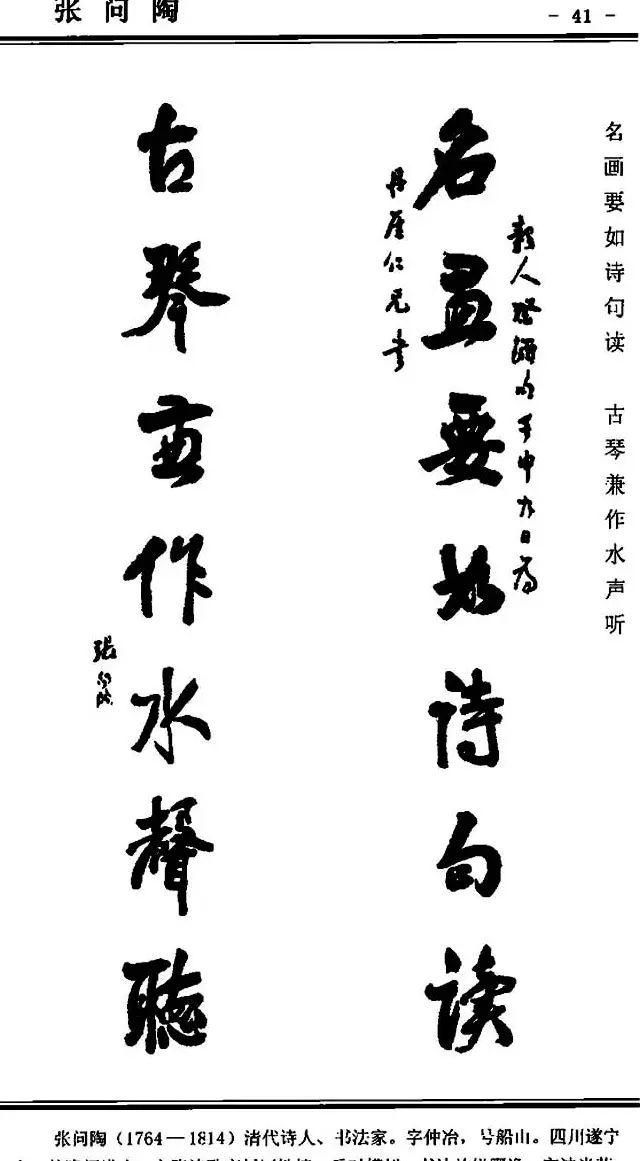 张问陶
- 41 -
名画要如诗句读 古琴兼作水声听
名畫要如诗句读
丹崖仁兄书
古琴兼作水聲聽
张问陶
张问陶（1764—1814）清代诗人、书法家。字仲冶，号船山。四川遂宁